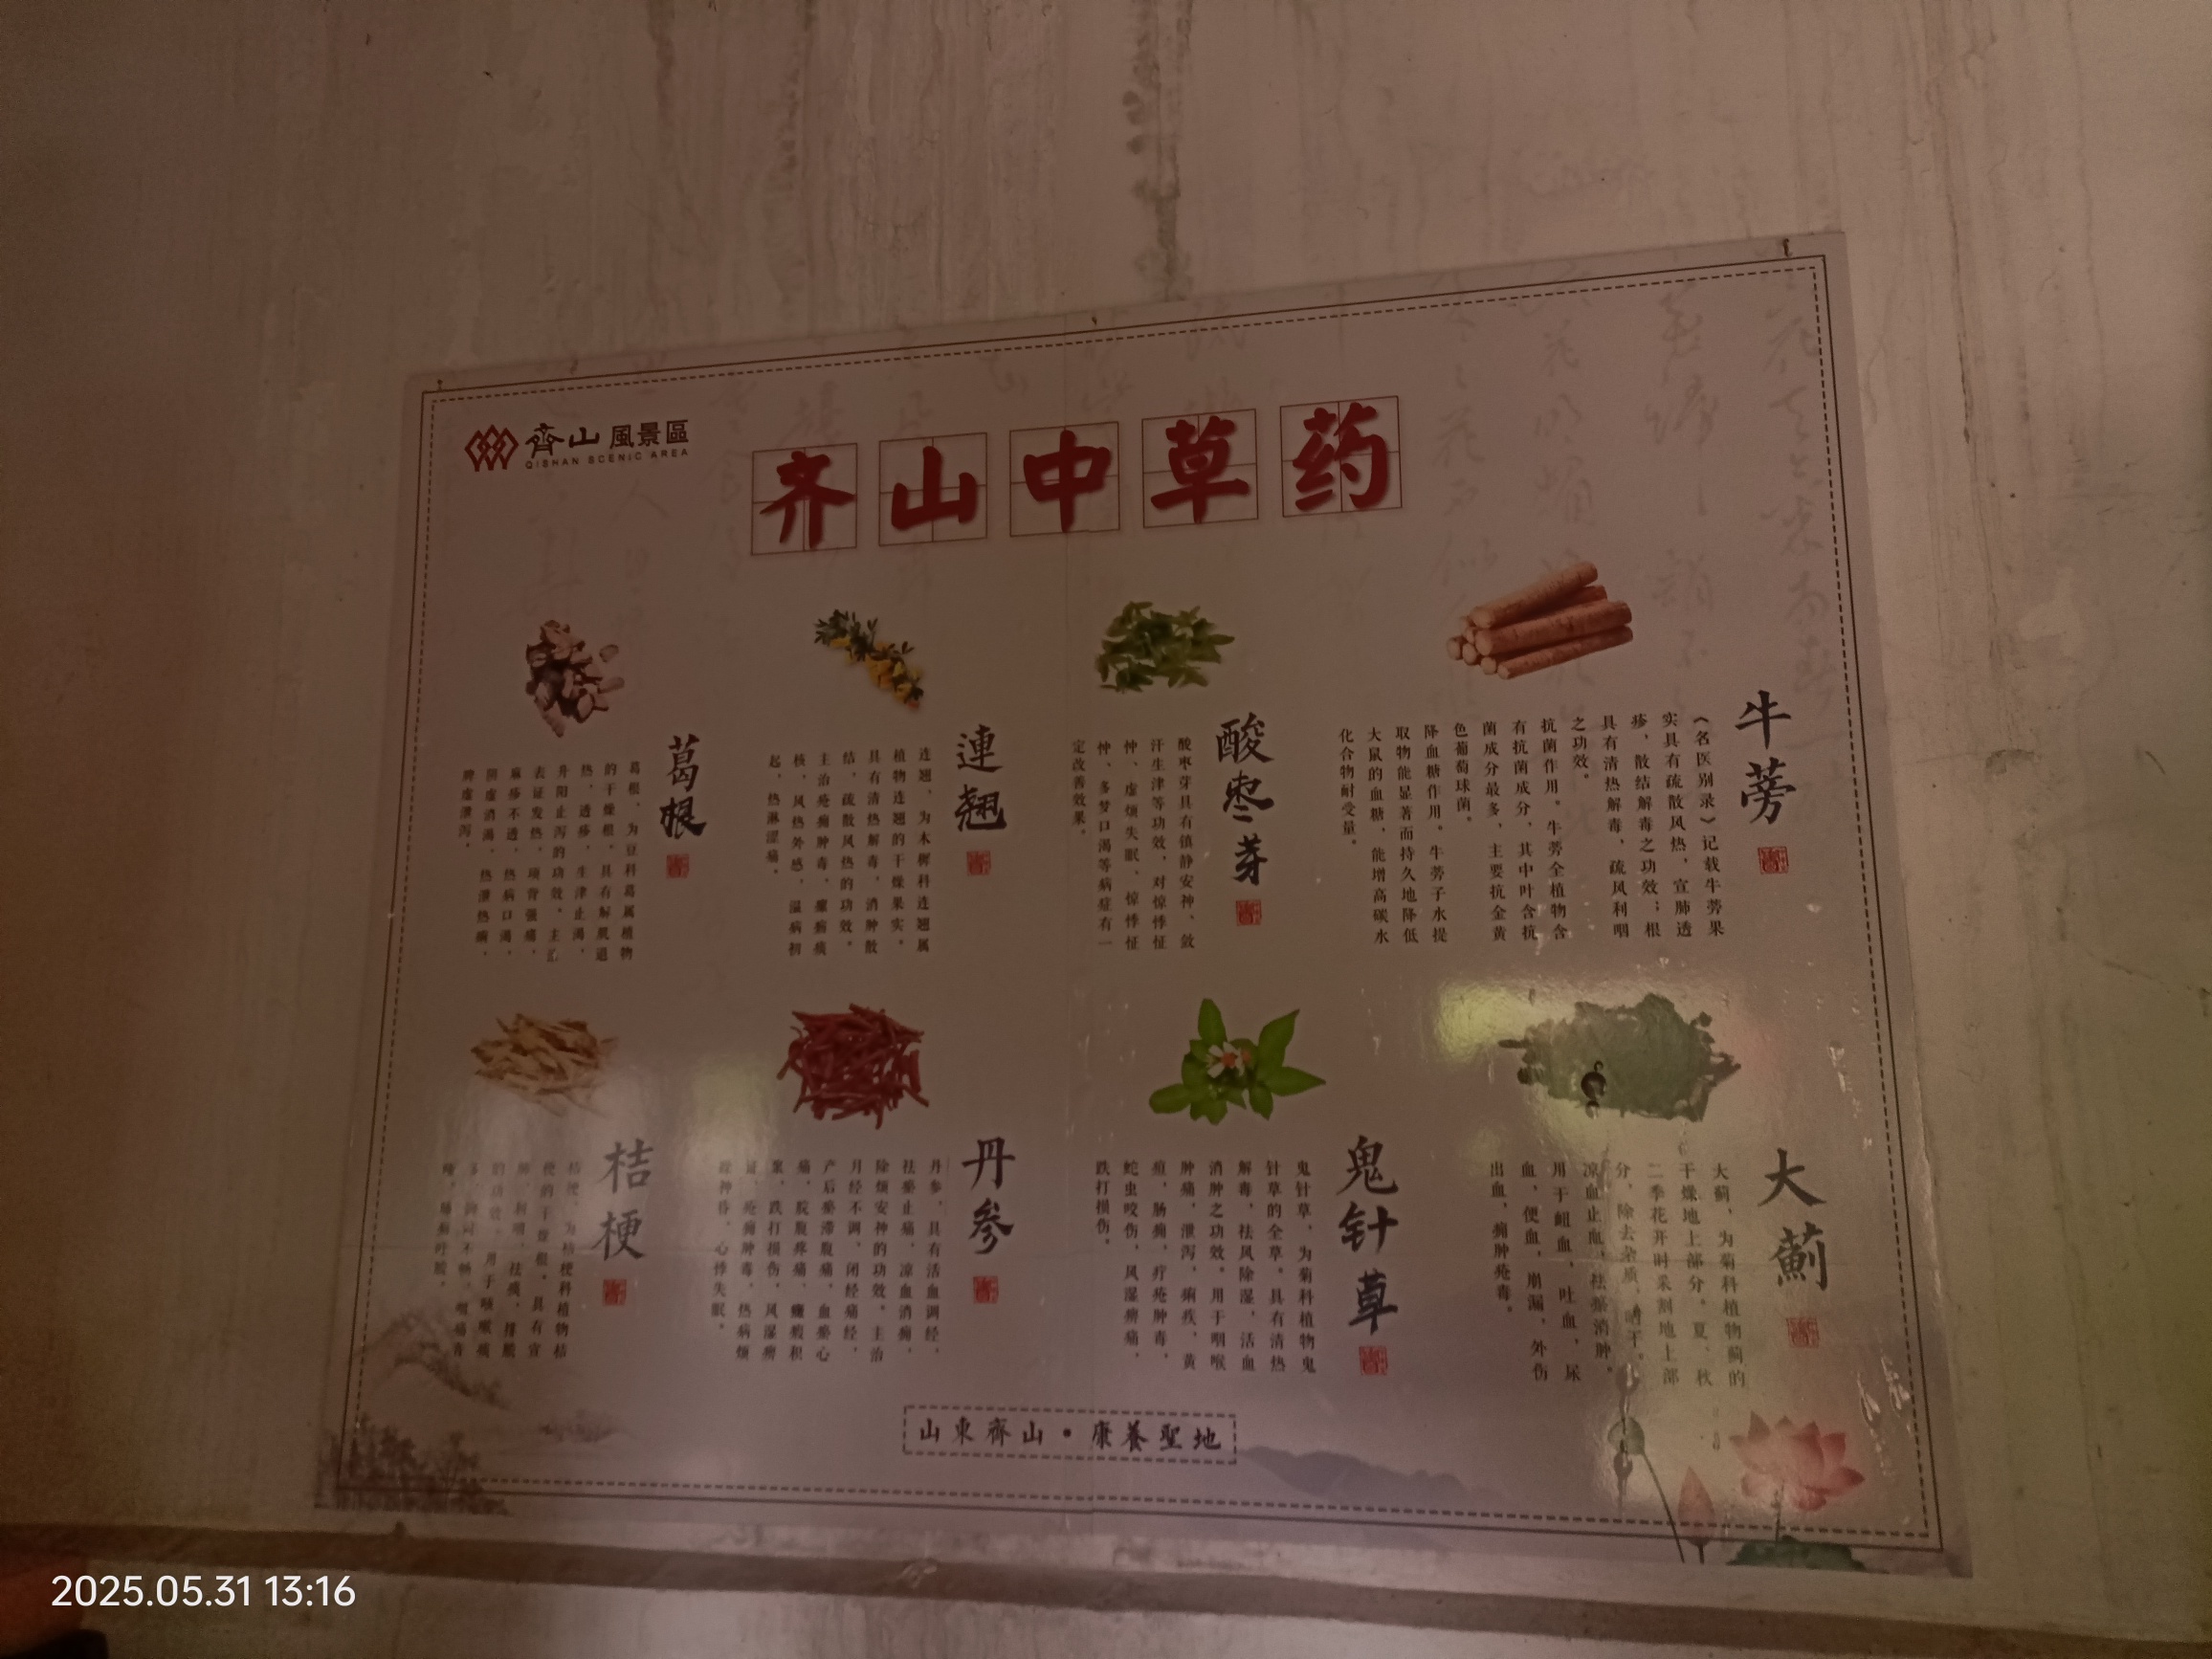 齊山 風景區
QISHAN SCENIC AREA
齐山中草药
牛蒡
《名医别录》记载牛蒡果
实具有疏散风热，宣肺透
疹，散结解毒之功效；根
具有清热解毒、疏风利咽
之功效。
抗菌作用。牛蒡全植物含
有抗菌成分，其中叶含抗
菌成分最多，主要抗金黄
色葡萄球菌。
降血糖作用。牛蒡子水提
取物能显著而持久地降低
大鼠的血糖、能增高碳水
化合物耐受量。
酸枣芽
酸枣芽具有镇静安神、敛
汗生津等功效，对惊悸怔
忡、虚烦失眠、惊悸怔
忡、多梦口渴等病症有一
定改善效果。
連翘
连翘，为木樨科连翘属
植物连翘的干燥果实。
具有清热解毒，消肿散
结，疏散风热的功效。
主治疮痈肿毒，瘰疬痰
核，风热外感，温病初
起，热淋涩痛。
葛根
葛根，为豆科葛属植物
的干燥根。具有解肌退
热，透疹，生津止渴，
升阳止泻的功效。主治
去证发热，项背强痛，
麻疹不透，热病口渴，
阴虚消渴，热泄热痢，
脾虚泄泻。
大薊
大蓟，为菊科植物蓟的
干燥地上部分。夏、秋
二季花开时采割地上部
分，除去杂质，晒干。
凉血止血，祛瘀消肿。
用于衄血，吐血，尿
血，便血，崩漏，外伤
出血，痈肿疮毒。
鬼针草
鬼针草，为菊科植物鬼
针草的全草。具有清热
解毒，祛风除湿，活血
消肿之功效。用于咽喉
肿痛，泄泻，痢疾，黄
疸，肠痈，疔疮肿毒，
蛇虫咬伤，风湿痹痛，
跌打损伤。
丹参
丹参，具有活血调经，
祛瘀止痛，凉血消痈，
除烦安神的功效。主治
月经不调，闭经痛经，
产后瘀滞腹痛，血瘀心
痛，脘腹疼痛，癥瘕积
聚，跌打损伤，风湿痹
痛，疮痈肿毒，热病烦
躁神昏，心悸失眠。
桔梗
桔梗，为桔梗科植物桔
梗的干燥根。具有宣
肺，利咽，祛痰，排脓
的功效。用于咳嗽痰
多，胸闷不畅，咽痛音
哑，肺痈吐脓。
山東齊山·康養聖地
2025.05.31 13:16